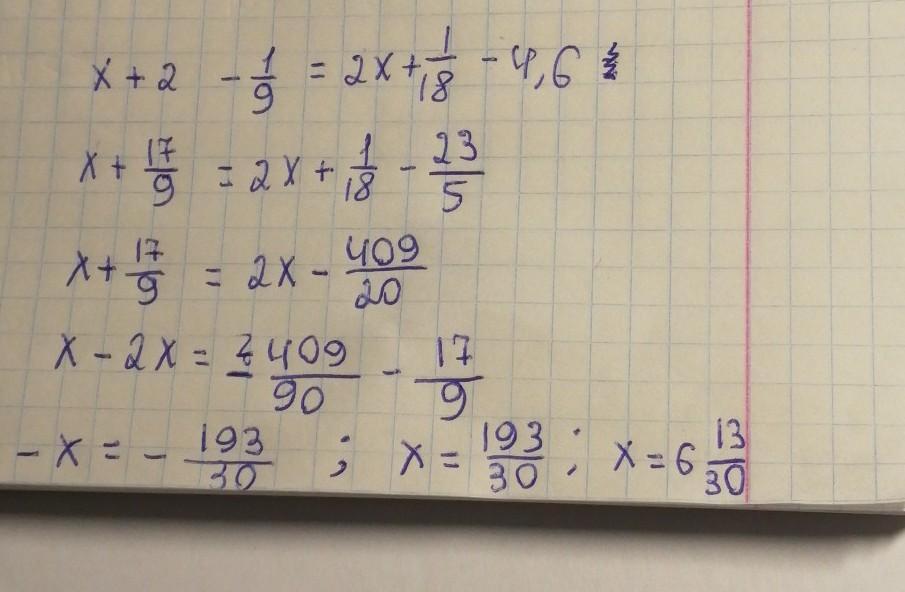 x + 2 - 1/9 = 2x + 1/18 - 4,6
x + 17/9 = 2x + 1/18 - 23/5
x + 17/9 = 2x - 409/20
x - 2x = - 409/90 - 17/9
- x = - 193/30 ; x = 193/30 ; x = 6 13/30